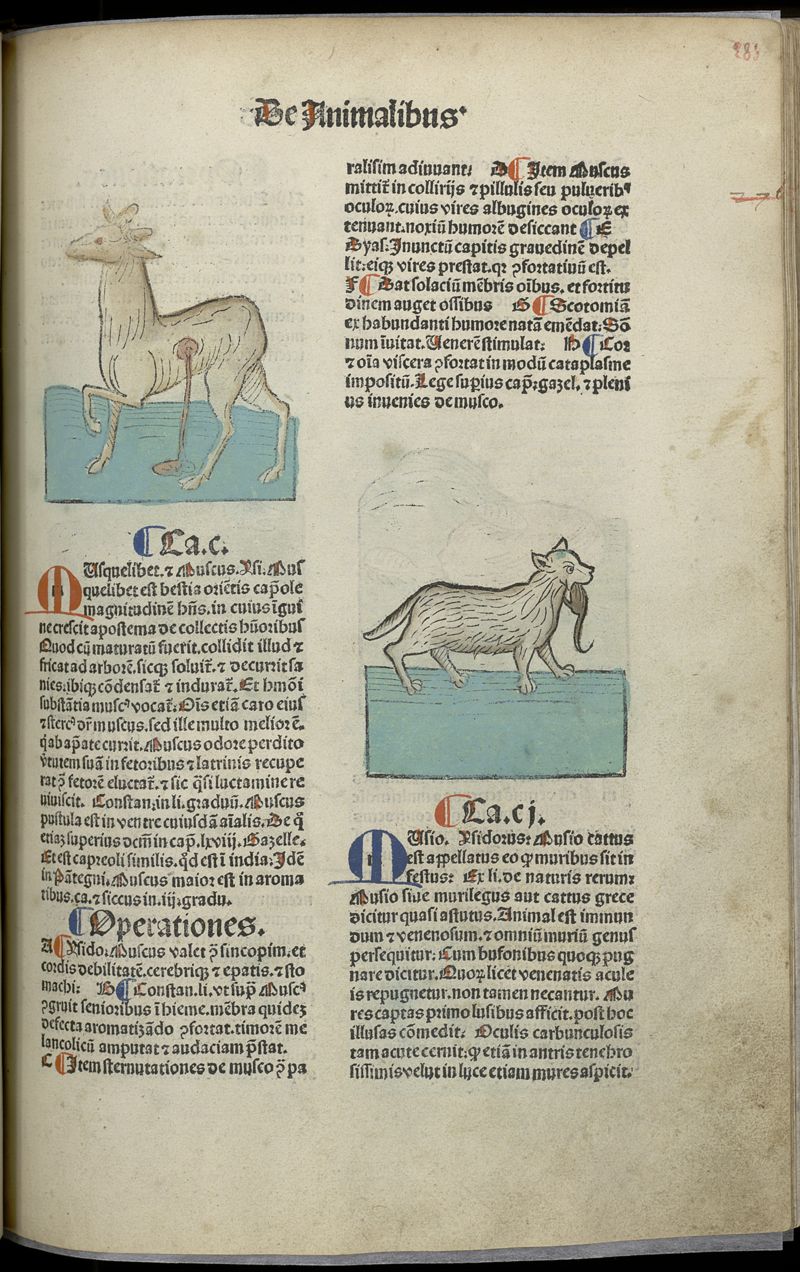 De Animalibus.
Ca.c.
MUsquelibet.⁊ Muscus. Ysi. Mus
quelibet est bestia oriētis cap̄ole
magnitudinē hñs.in cuius īgui
ne crescit apostema de collectis hūoribus
Quod cū maturatū fuerit.collidit illud ⁊
fricat ad arborē.sicq̢ soluit̄.⁊ decurrit sa
nies.ibiq̢ cōdensat̄ ⁊ indurat̄. Et hmōi
substātia muscꝰ vocat̄. Oīs etiā caro eius
⁊ stercꝰ dr̄ muscus.sed ille multo melior ē.
q̄ ab ap̄ate currit. Muscus odore perdito
v̄tutem suā in fetoribus ⁊ latrinis recupe
rat ꝓ̄ fetorē eluctat̄.⁊ sic q̄si luctamine re
uiuiscit. Constan.in li.graduū. Muscus
pustula est in ventre cuiusdā aīalis. De q̄
etiaʒ superius dc̄m in cap̄.lxviij. Gazelle.
Et est capreoli similis.q̄d est ī india. Idē
in Pātegni. Muscus maior est in aroma
tibus.ca.⁊ siccus in.iij.gradu.
Operationes.
A Ysido. Muscus valet ꝓ̄ sincopim.et
cordis debilitatē.cerebriq̢ ⁊ epatis.⁊ sto
machi: B Constan.li.vt sup̄ Muscꝰ
ꝯgruit senioribus ī hieme.mēbra quideʒ
defecta aromatizādo ꝯfortat.timorē me
lancolicū amputat ⁊ audaciam p̄stat.
C Item sternutationes de musco ꝓ̄ pa
ralisim adiuuant: D Item Muscus
mittit̄ in collirijs ⁊ pillulis seu puluerib⁹
oculoꝝ.cuius vires albugines oculoꝝ ex
tenuant.noxiū humorē desiccant E
Dyas. Inunctū capitis grauedinē depel
lit.eiq̢ vires prestat.qꝛ ꝯfortatiuū est.
F Dat solaciū mēbris oībus. et fortitu
dinem auget ossibus G Scotomiā
ex habundanti humore natā emēdat: Sō
num īuitat. Uenerē stimulat: H Cor
⁊ oīa viscera ꝯfortat in modū cataplasme
impositū. Lege sup̄ius cap̄.gazel.⁊ pleni
us inuenies de musco.
Ca.cj.
MUsio. Ysidorus: Musio cattus
est appellatus eo ꝙ muribus sit in
festus: Ex li.de naturis rerum:
Musio siue murilegus aut cattus grece
dicitur quasi astutus. Animal est immun
dum ⁊ venenosum.⁊ omniū muriū genus
persequitur: Cum bufonibus quoq̢ pug
nare dicitur. Quoꝝ licet venenatis acule
is repugnetur.non tamen necantur. Mu
res captas primo lusibus afficit.post hoc
illusas cōmedit: Oculis carbunculosis
tam acute cernit:ꝙ etiā in antris tenebro
sissimis velut in luce etiam mures aspicit: